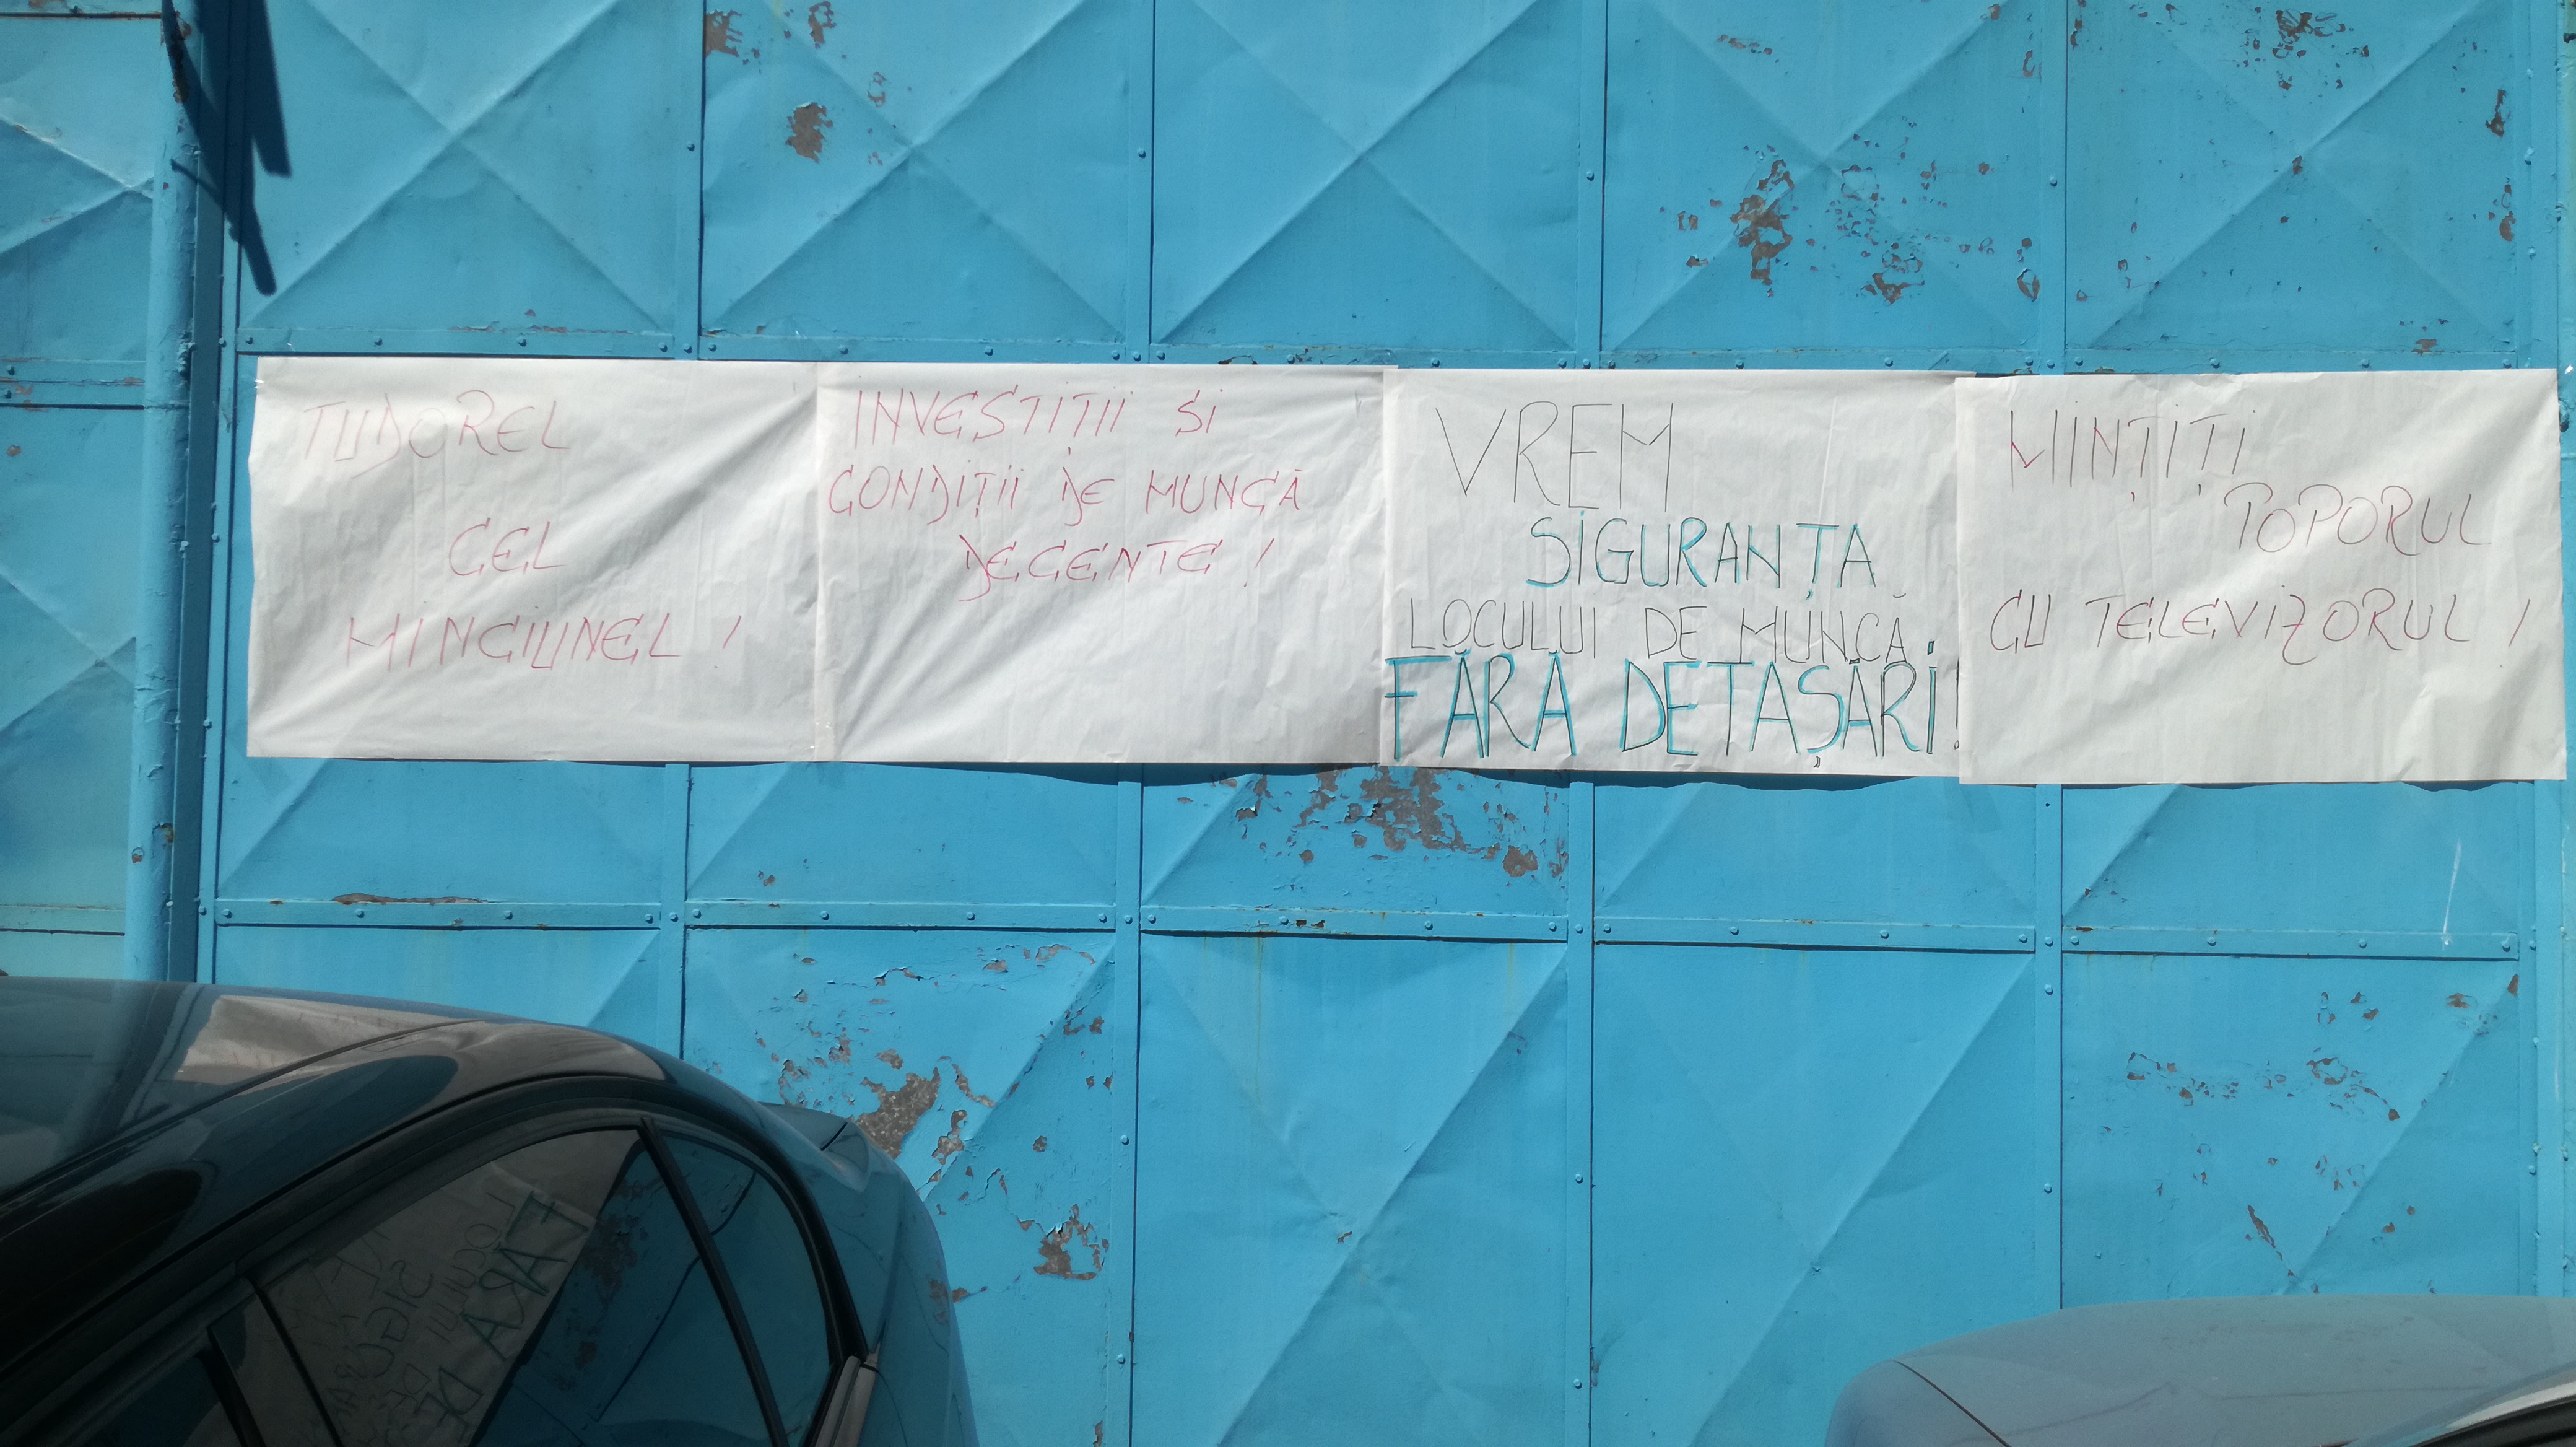 TUDOREL
CEL
MINCIUNEL !
INVESTIȚII SI
CONDIȚII DE MUNCĂ
DECENTE !
VREM
SIGURANȚA
LOCULUI DE MUNCĂ
FĂRĂ DETAȘĂRI!
MINȚIȚI
POPORUL
CU TELEVIZORUL !